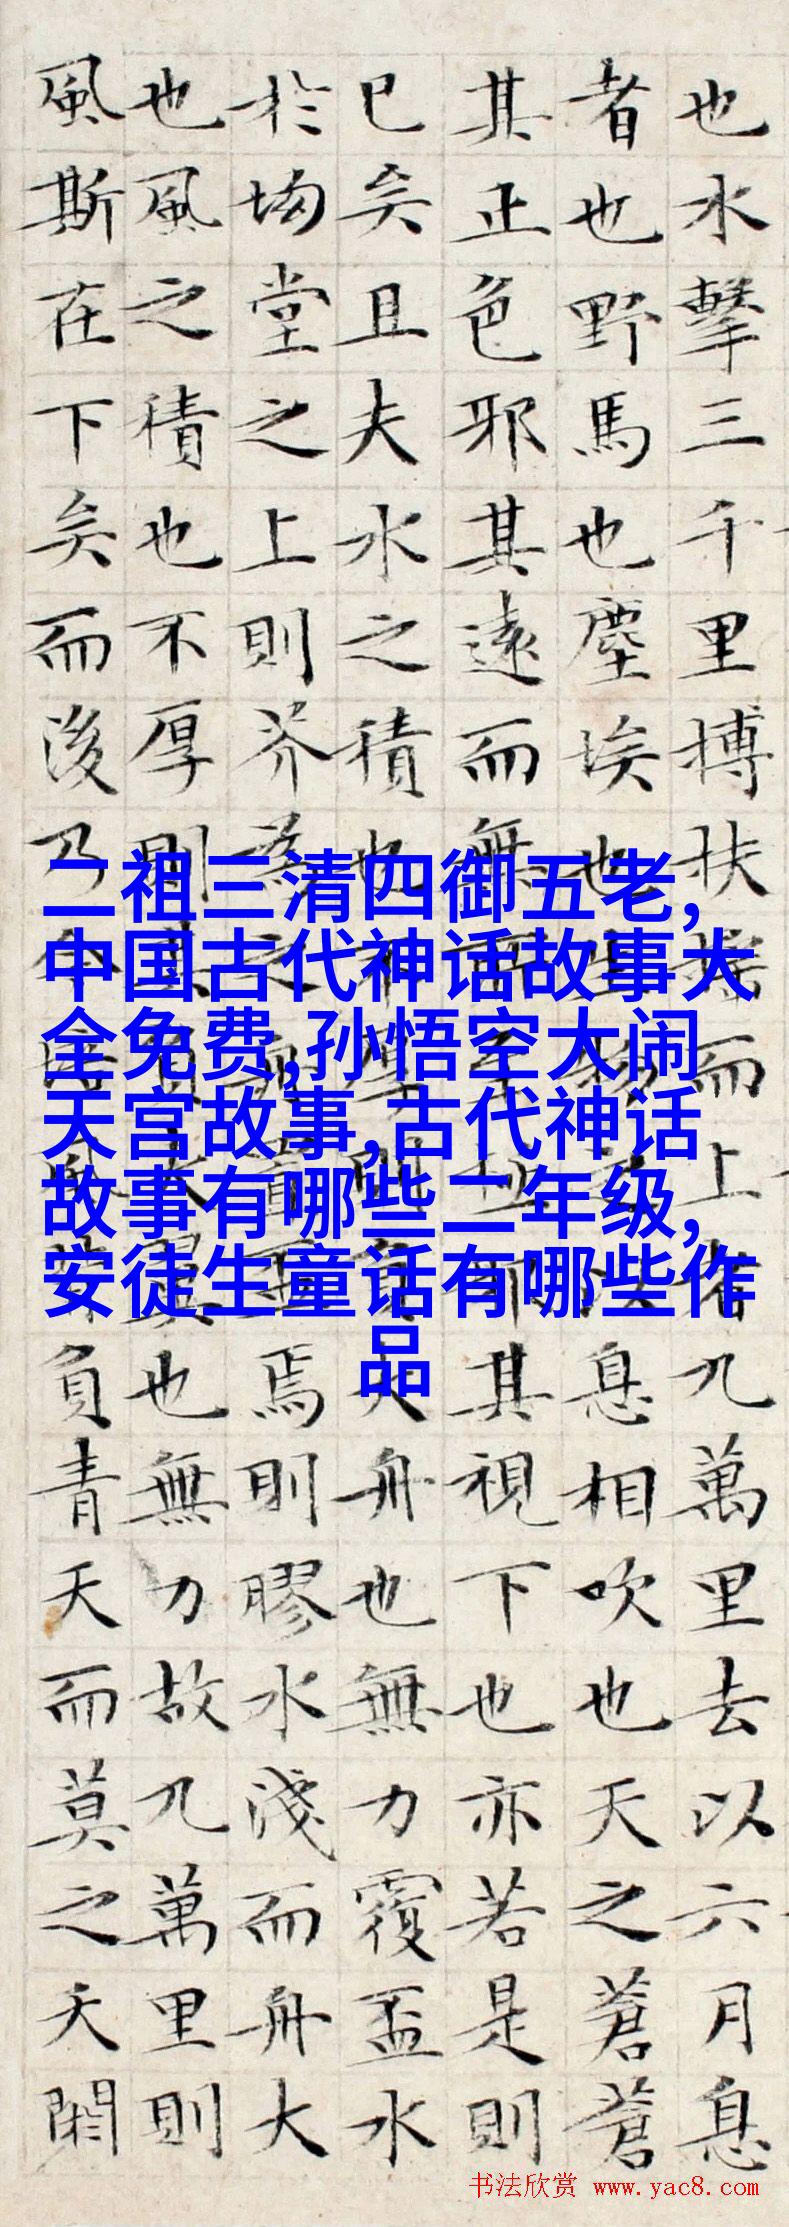 也水擊三千里搏扶搖而上者九萬里去以六月息
者也野馬也塵埃也生物之以息相吹也天之蒼蒼
其正色邪其遠而無所至極邪其視下也亦若是則
已矣且夫水之積也不厚則負大舟也無力覆盃水
於坳堂之上則芥為之舟置焉則膠水淺而舟大
也風之積也不厚則其負大翼也無力故九萬里則
風斯在下矣而後乃今培風背負青天而莫之夭閼
二祖三清四御五老,
中国古代神话故事大
全免费,孙悟空大闹
天宫故事,古代神话
故事有哪些二年级,
安徒生童话有哪些作
品
书法欣赏 www.yac8.com